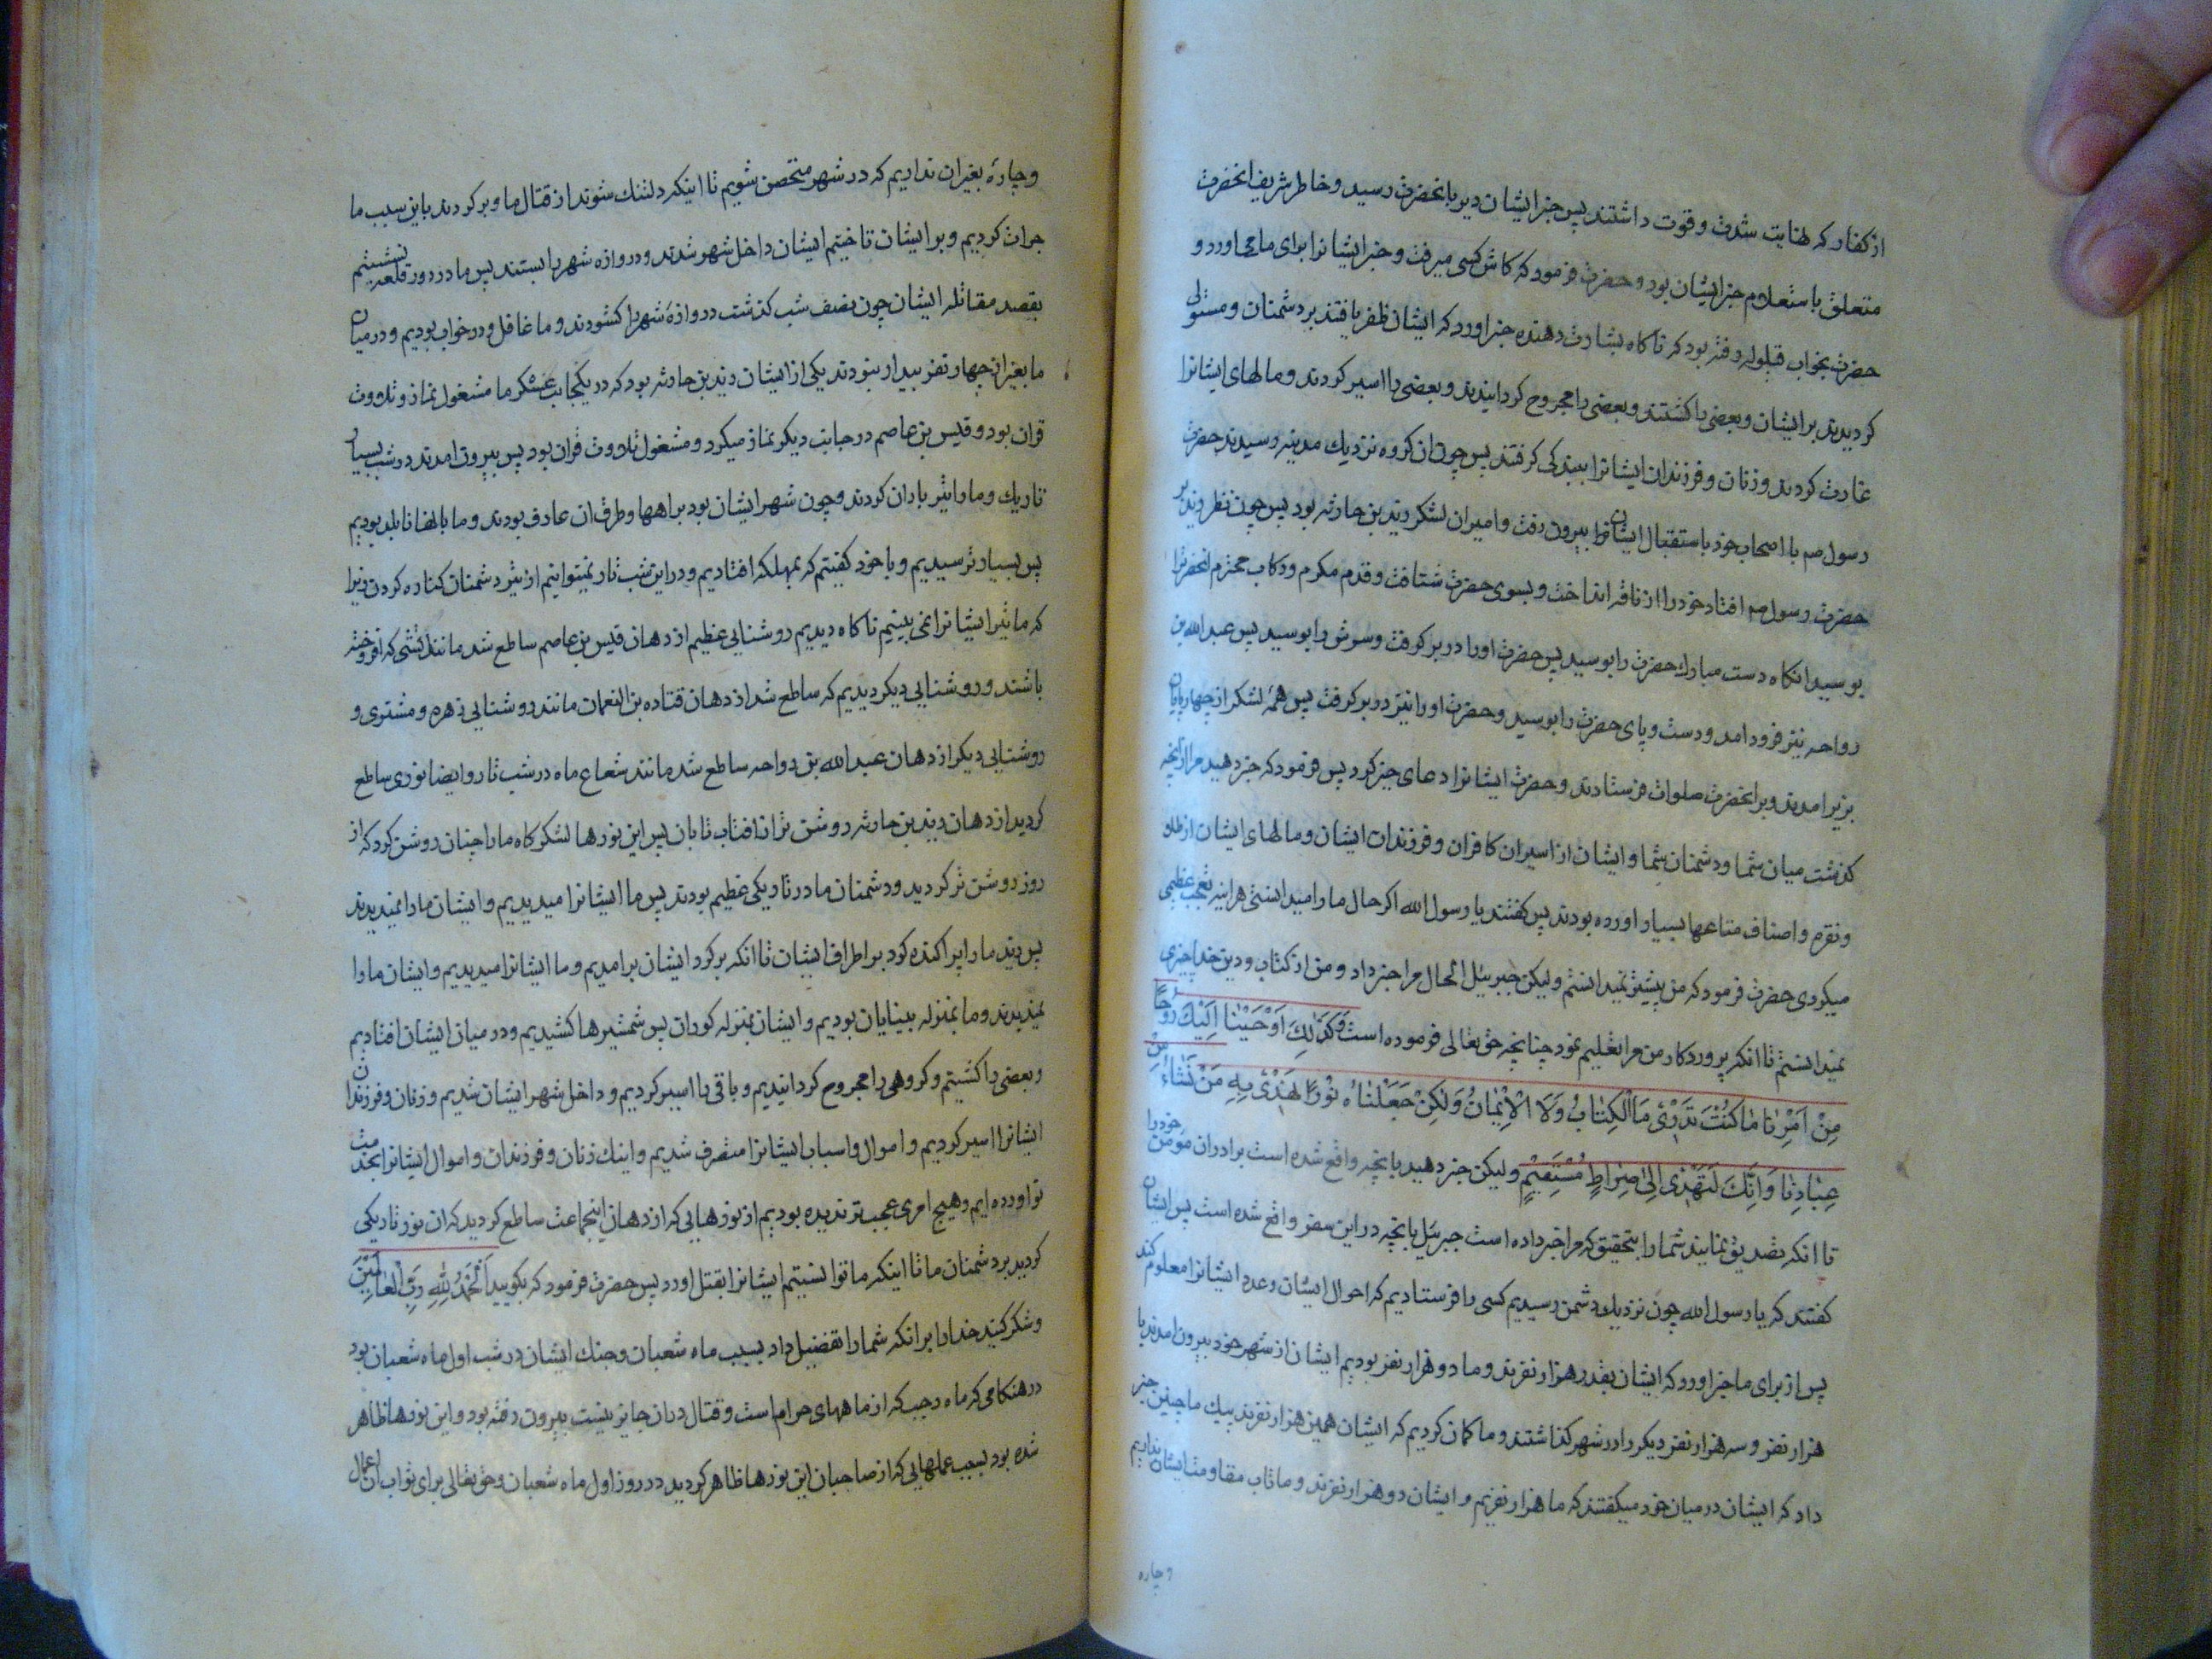 از کفار که نهایت شدت و قوت داشتند پس خبر ایشان دیر بانحضرت رسید و خاطر شریف انحضرت
متعلق باستعلام خبر ایشان بود و حضرت فرمود که کاش کسی میرفت و خبر ایشانرا برای ما می اورد و
حضرت بخواب قیلوله رفته بود که ناکاه بشارت دهنده خبر اورد که ایشان ظفر یافتند بر دشمنان و مستولی
کردیدند بر ایشان و بعضی را کشتند و بعضی را مجروح کردانیدند و بعضی را اسیر کردند و مالهای ایشانرا
غارت کردند و زنان و فرزندان ایشانرا ببندکی کرفتند پس چون ان کروه نزدیك مدینه رسیدند حضرت
رسول صم با اصحاب خود باستقبال ایشان بیرون رفت و امیر ان لشکر زید بن حارثه بود پس چون نظر زید بر
حضرت رسول صم افتاد خود را از ناقه انداخت و بسوی حضرت شتافت و قدم مکرم و رکاب محترم انحضرترا
بوسید انکاه دست مبارك حضرت را بوسید پس حضرت اورا در بر کرفت و سرش را بوسید پس عبد الله بن
رواحه نیز فرود امد و دست و پای حضرت را بوسید و حضرت اورا نیز در بر کرفت پس همهٔ لشکر از چهارپایان
بزیر امدند و بر انحضرت صلوات فرستادند و حضرت ایشانرا دعای خیر کرد پس فرمود که خبر دهید مرا از انچه
کذشت میان شما و دشمنان شما و ایشان از اسیران کافران و فرزندان ایشان و مالهای ایشان از طلا
و نقره و اصناف متاعها بسیار اورده بودند پس کفتند یا رسول الله اکر حال ما را میدانستی هراینه تعجب عظیمی
میکردی حضرت فرمود که من پیشتر نمیدانستم ولیکن جبرئیل الحال مرا خبر داد و من از کتاب و دین خدا چیزی
نمیدانستم تا انکه پروردکار من مرا تعلیم نمود چنانچه حق تعالی فرموده است وَكَذَٰلِكَ اَوْحَيْنَا اِلَيْكَ رُوحًا
مِنْ اَمْرِنَا مَا كُنْتَ تَدْرِی مَا الْكِتَابُ وَلَا الْاِيْمَانُ وَلَكِنْ جَعَلْنَاهُ نُوْرًا نَهْدِیْ بِهِ مَنْ نَشَاءُ مِنْ
عِبَادِنَا وَاِنَّكَ لَتَهْدِی اِلَىٰ صِرَاطٍ مُسْتَقِيْمٍ ولیکن خبر دهید بانچه واقع شده است برادران مومن خود را
تا انکه تصدیق نمایند شما را بتحقیق که مرا خبر داده است جبرئیل بانچه در این سفر واقع شده است پس ایشان
کفتند که یا رسول الله چون نزدیك دشمن رسیدیم کسی را فرستادیم که احوال ایشان و عدد ایشانرا معلوم کند
پس از برای ما خبر اورد که ایشان بقدر هزار نفرند و ما دو هزار نفر بودیم ایشان از شهر خود بیرون امدند با
هزار نفر و سه هزار نفر دیکر را در شهر کذاشتند و ما کمان کردیم که ایشان همین هزار نفرند پیك ما چنین خبر
داد که ایشان در میان خود میکفتند که ما هزار نفریم و ایشان دو هزار نفرند و ما تاب مقاومت ایشان نداریم
و چاره
و چارهٔ بغیر ان نداریم که در شهر متحصن شویم تا اینکه دلتنك شوند از قتال ما و برکردند باین سبب ما
جرات کردیم و بر ایشان تاختیم ایشان داخل شهر شدند و دروازه شهر را بستند پس ما در دور قلعه نشستیم
بقصد مقاتله ایشان چون نصف شب کذشت دروازهٔ شهر را کشودند و ما غافل و در خواب بودیم و در میان
ما بغیر از چهار نفر بیدار نبودند یکی از ایشان زید بن حارثه بود که در یکجانب عسکر ما مشغول نماز و تلاوت
قران بود و قیس بن عاصم در جانب دیکر نماز میکرد و مشغول تلاوت قران بود پس بیرون امدند در شب بسیار
تاریك و ما را تیر باران کردند و چون شهر ایشان بود براهها و طرف ان عارف بودند و ما بانها نابلد بودیم
پس بسیار ترسیدیم و با خود کفتیم که بمهلکه افتادیم و در این شب تار نمیتوانیم از تیر دشمنان کناره کردن زیرا
که ما تیر ایشانرا نمی بینیم ناکاه دیدیم روشنایی عظیم از دهان قیس بن عاصم ساطع شد مانند اتشی که افروخته
باشند و روشنایی دیکر دیدیم که ساطع شد از دهان قتاده بن النعمان مانند روشنایی زهره و مشتری و
روشنایی دیکر از دهان عبد الله بن رواحه ساطع شد مانند شعاع ماه در شب تار و ایضا نوری ساطع
کردید از دهان زید بن حارثه روشن تر از افتاب تابان پس این نورها لشکرکاه ما را چنان روشن کرد که از
روز روشن تر کردید و دشمنان ما در تاریکی عظیم بودند پس ما ایشانرا میدیدیم و ایشان ما را نمیدیدند
پس زید ما را پراکنده کرد بر اطراف ایشان تا انکه بر کرد ایشان برامدیم و ما ایشانرا میدیدیم و ایشان ما را
نمیدیدند و ما بمنزله بینایان بودیم و ایشان بمنزله کوران پس شمشیرها کشیدیم و در میان ایشان افتادیم
و بعضی را کشتیم و کروهی را مجروح کردانیدیم و باقی را اسیر کردیم و داخل شهر ایشان شدیم و زنان و فرزندان
ایشانرا اسیر کردیم و اموال و اسباب ایشانرا متصرف شدیم و اینك زنان و فرزندان و اموال ایشانرا بخدمت
تو اورده ایم و هیچ امری عجب تر ندیده بودیم از نورهایی که از دهان اینجماعت ساطع کردید که ان نور تاریکی
کردید بر دشمنان ما تا اینکه ما توانستیم ایشانرا بقتل اورد پس حضرت فرمود که بکویید اَلْحَمْدُ لِلّٰهِ رَبِّ الْعَالَمِيْنَ
و شکر کنید خدا را بر انکه شما را تفضیل داد بسبب ماه شعبان و جنك ایشان در شب اول ماه شعبان بود
در هنکامی که ماه رجب که از ماههای حرام است و قتال در ان جایز نیست بیرون رفته بود و این نورها ظاهر
شده بود بسبب عملهایی که از صاحبان این نورها ظاهر کردید در روز اول ماه شعبان و حق تعالی برای ثواب ان اعمال